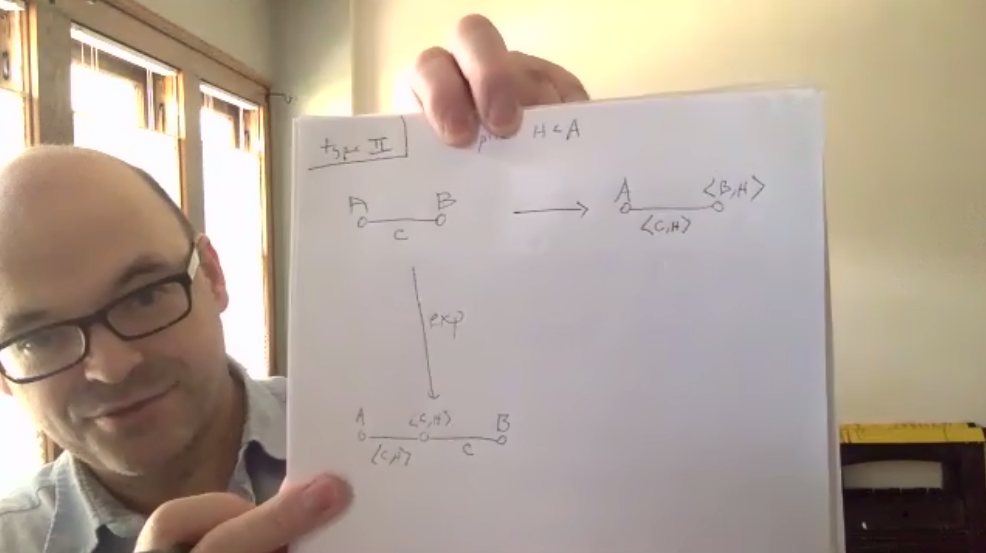 type II
H < A
A B A ⟨B,H⟩
c ⟨C,H⟩
exp
A ⟨C,H⟩ B
⟨C,H⟩ c